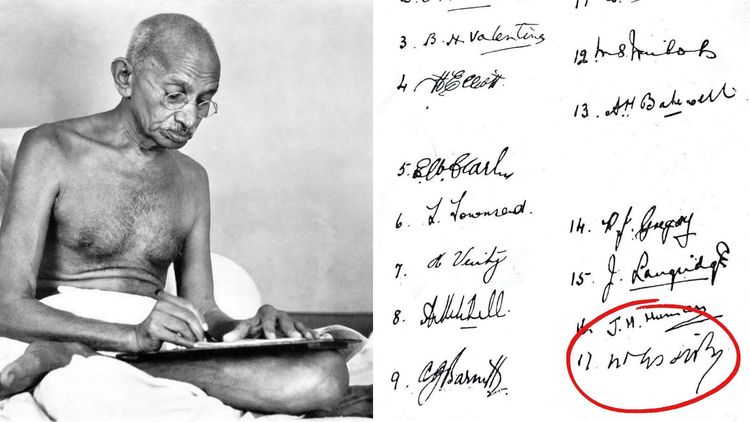 3 B. H Valentine
4 H Elliott
5. E W Clark
6 L. Townsend.
7 H Verity
8. A Mitchell
9. C J Barnett
12 M S Nichols
13. A H Bakewell
14. R J. Gregory
15. J. Langridge
16 J. H. Human
17.